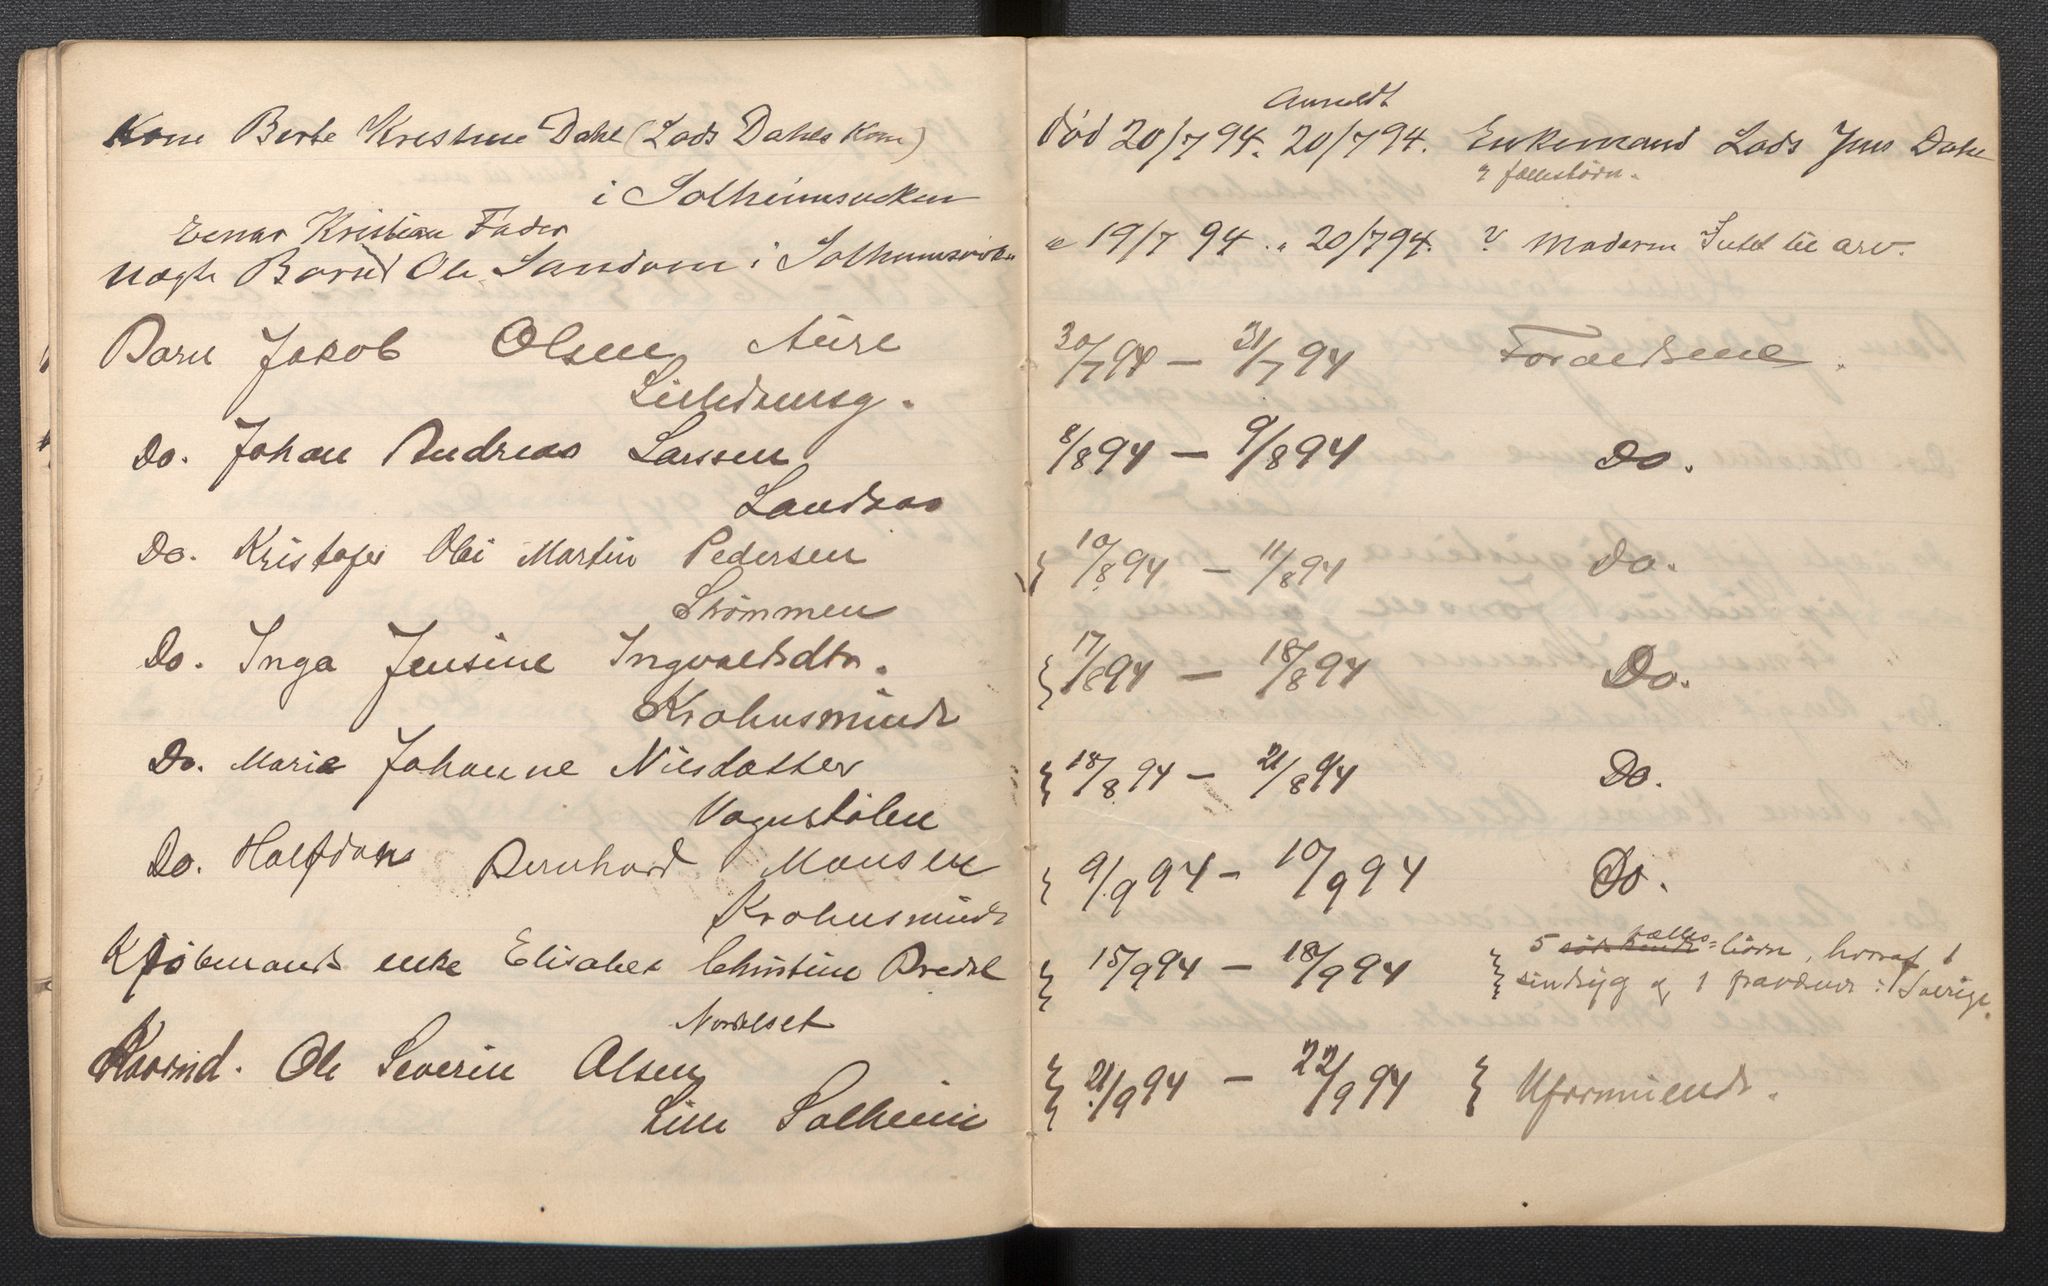 Kone Berte Kristine Dahl (Lods Dahls Kone)
i Solheimsviken
Einar Kristian Fader
uægte Barn Ole Sandom i Solheimsviken
Barn Jakob Olsen Aure
Lilledamsg.
Do. Johan Andreas Larssen
Landaas
Do. Kristofer Olai Martin Pedersen
Strømmen
Do. Inga Jensine Ingvaldsdtr.
Krohnsminde
Do. Marie Johanne Nilsdatter
Vognstølen
Do. Halfdan Bernhard Monsen
Krohnsminde
Kjøbmands enke Elisabet Christine Bredel
Nordeset
Ole Severin Olsen
Lille Solheim
Anmeldt
død 20/7 94. 20/7 94. Enkemand Lods Jens Dahl
fællesbørn.
" 19/7 94. " 20/7 94. ? Moderen Intet til arv.
30/7 94 — 31/7 94 Forældrene.
8/8 94 — 9/8 94 Do.
10/8 94 — 11/8 94 Do.
17/8 94 — 18/8 94 Do.
18/8 94 — 21/8 94 Do.
9/9 94 — 10/9 94 Do.
15/9 94 — 18/9 94 5 fælles=børn, hvoraf 1
sindsyg og 1 i Sverige.
21/9 94 — 22/9 94 Uformuende.